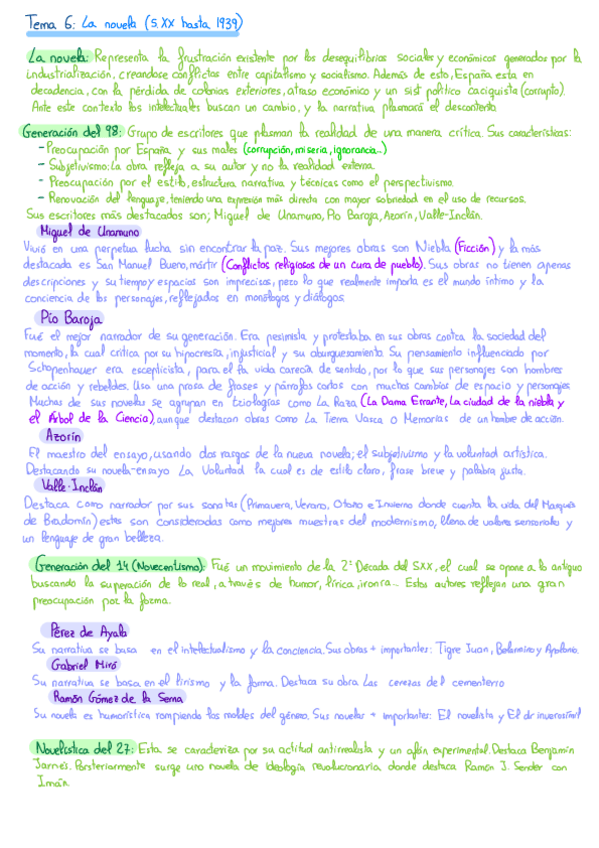 Tema 6: La novela (S.XX hasta 1939)
La novela: Representa la frustración existente por los desequilibrios sociales y económicos generados por la
industrialización, creandose conflictos entre capitalismo y socialismo. Además de esto, España esta en
decadencia, con la pérdida de colonias exteriores, atraso económico y un sist político caciquista (corrupto).
Ante este contexto los intelectuales buscan un cambio, y la narrativa plasmará el descontento
Generación del 98: Grupo de escritores que plasman la realidad de una manera crítica. Sus características:
- Preocupación por España y sus males (corrupción, miseria, ignorancia...)
- Subjetivismo: La obra refleja a su autor y no la realidad externa.
- Preocupación por el estilo, estructura narrativa y técnicas como el perspectivismo.
- Renovación del lenguaje, teniendo una expresión más directa con mayor sobriedad en el uso de recursos.
Sus escritores más destacados son; Miguel de Unamuno, Pío Baroja, Azorín, Valle-Inclán.
Miguel de Unamuno
Vivió en una perpetua lucha sin encontrar la paz. Sus mejores obras son Niebla (Ficción) y la más
destacada es San Manuel Bueno, mártir (Conflictos religiosos de un cura de pueblo). Sus obras no tienen apenas
descripciones y su tiempo y espacios son imprecisos, pero lo que realmente importa es el mundo íntimo y la
conciencia de los personajes, reflejados en monólogos y diálogos.
Pío Baroja
Fué el mejor narrador de su generación. Era pesimista y protestaba en sus obras contra la sociedad del
momento, la cual critica por su hipocresía, injusticial y su aburguesamiento. Su pensamiento influenciado por
Schopenhauer era escepticista, para el la vida carecía de sentido, por lo que sus personajes son hombres
de acción y rebeldes. Usa una prosa de frases y párrafos cortos con muchos cambios de espacio y personajes
Muchas de sus novelas se agrupan en triologías como La Raza (La Dama Errante, La ciudad de la niebla y
el Árbol de la Ciencia), aunque destacan obras como La Tierra Vasca o Memorias de un hombre de acción.
Azorín
El maestro del ensayo, usando dos rasgos de la nueva novela; el subjetivismo y la voluntad artística.
Destacando su novela-ensayo La Voluntad la cual es de estilo claro, frase breve y palabra justa.
Valle-Inclán
Destaca como narrador por sus sonatas (Primavera, Verano, Otoño e Invierno donde cuenta la vida del Marqués
de Bradomín) estas son consideradas como mejores muestras del modernismo, llena de valores sensoriales y
un lenguaje de gran belleza.
Generación del 14 (Novecentismo): Fué un movimiento de la 2ª Década del SXX, el cual se opone a lo antiguo
buscando la superación de lo real, a través de humor, lírica, ironía... Estos autores reflejan una gran
preocupación por la forma.
Pérez de Ayala
Su narrativa se basa en el intelectualismo y la conciencia. Sus obras + importantes: Tigre Juan, Belarmino y Apolonio.
Gabriel Miró
Su narrativa se basa en el lirismo y la forma. Destaca su obra Las cerezas del cementerio
Ramón Gómez de la Serna
Su novela es humorística rompiendo los moldes del género. Sus novelas + importantes: El novelista y El dr inverosímil
Novelística del 27: Esta se caracteriza por su actitud antirrealista y un afán experimental. Destaca Benjamín
Jarnés. Porsteriormente surge una novela de ideología revolucionaria donde destaca Ramón J. Sender con
Imán.